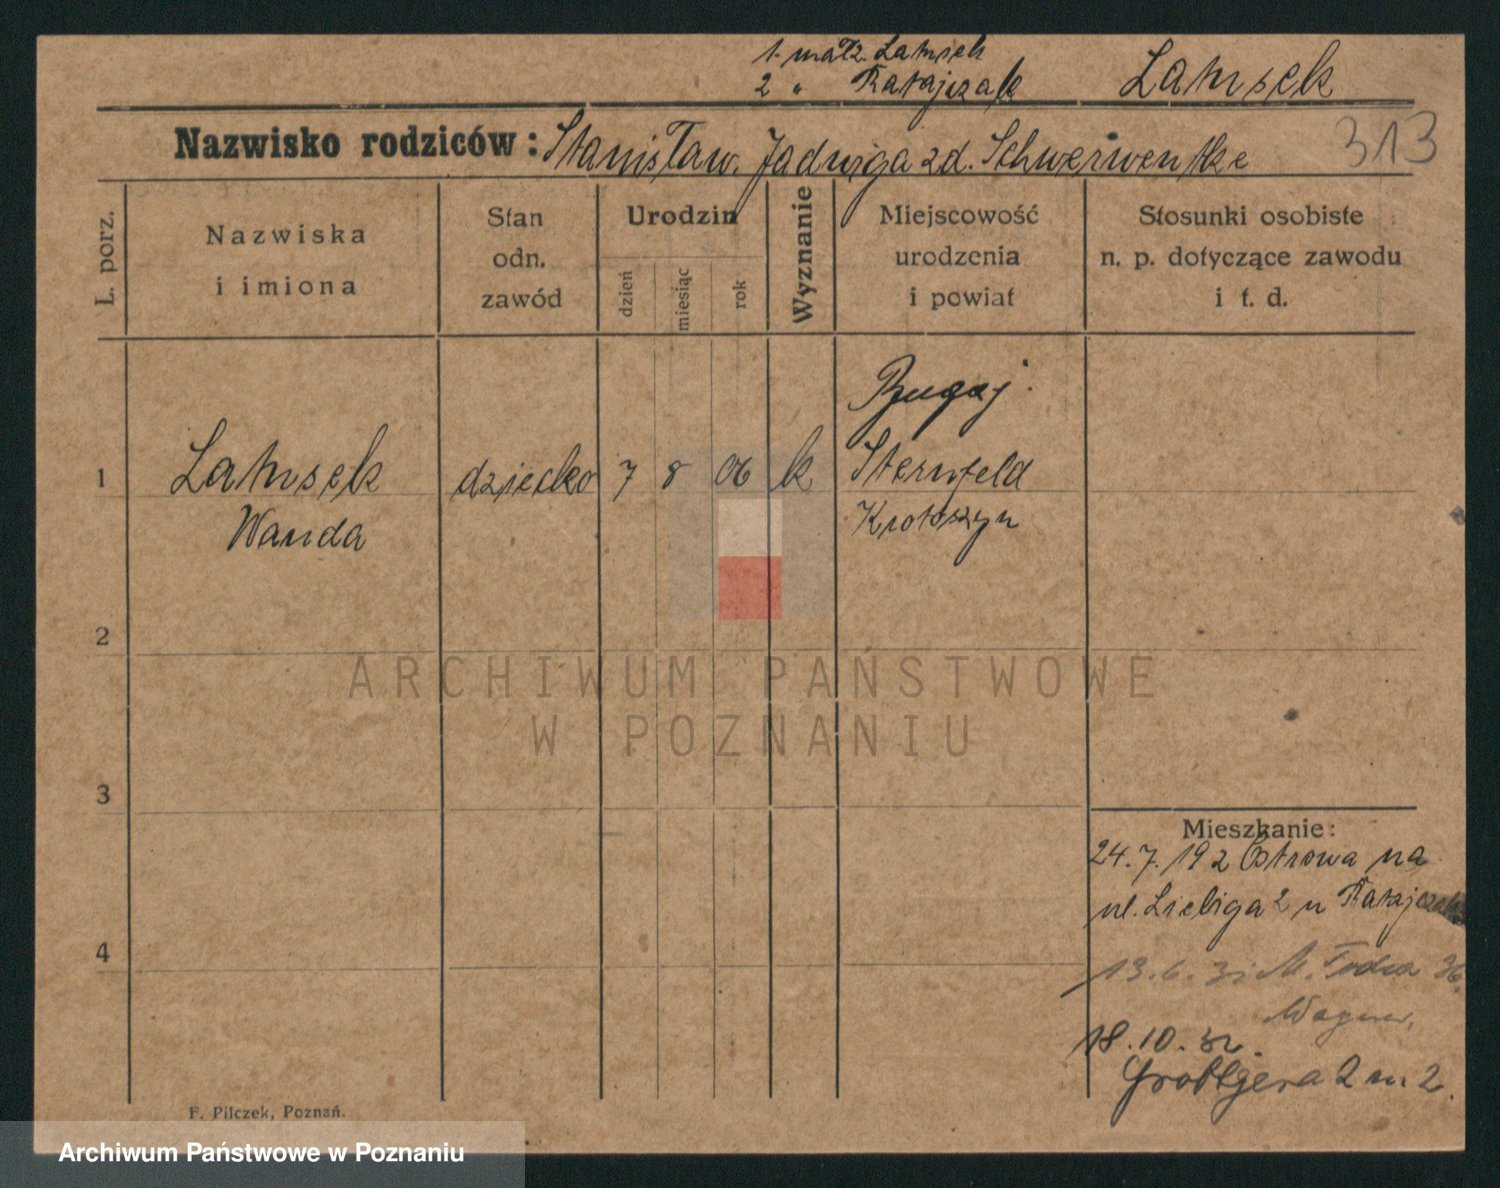 1. małż. Lamsek
2 „ Ratajczak
Lamsek
Nazwisko rodziców: Stanisław. Jadwiga zd. Schwerwentke
313
L. porz.
Nazwiska
i imiona
Stan
odn.
zawód
Urodzin
dzień
miesiąc
rok
Wyznanie
Miejscowość
urodzenia
i powiat
Stosunki osobiste
n. p. dotyczące zawodu
i t. d.
Bugaj
1 Lamsek dziecko 7 8 06 k Sternfeld
Wanda Krotoszyn
2
ARCHIWUM PAŃSTWOWE
W POZNANIU
3
Mieszkanie:
24.7.19 z Ostrowa na
ul. Liebiga 2 u Ratajczak
4
13.6.31 M. Focha 36.
Wagner,
18.10.32.
Grottgera 2 m 2.
F. Pilczek, Poznań.
Archiwum Państwowe w Poznaniu